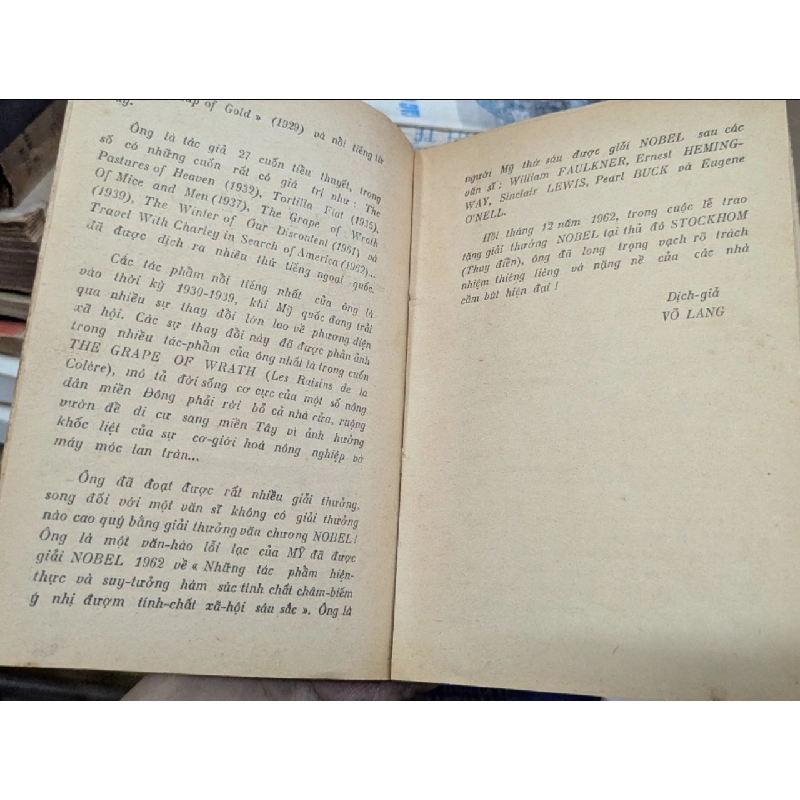 ap of Gold » (1929) và nổi tiếng từ
Ông là tác giả 27 cuốn tiểu thuyết, trong
số có những cuốn rất có giá trị như : The
Pastures of Heaven (1932), Tortilla Flat (1935),
Of Mice and Men (1937), The Grape of Wrath
(1939), The Winter of Our Discontent (1961) và
Travel With Charley in Search of America (1962)...
đã được dịch ra nhiều thứ tiếng ngoại quốc.
Các tác phẩm nổi tiếng nhất của ông là
vào thời kỳ 1930-1939, khi Mỹ quốc đang trải
qua nhiều sự thay đổi lớn lao về phương diện
xã hội. Các sự thay đổi này đã được phản ảnh
trong nhiều tác-phẩm của ông nhất là trong cuốn
THE GRAPE OF WRATH (Les Raisins de la
Colère), mô tả đời sống cơ cực của một số nông
dân miền Đông phải rời bỏ cả nhà cửa, ruộng
vườn để di cư sang miền Tây vì ảnh hưởng
khốc liệt của sự cơ-giới hoá nông nghiệp và
máy móc lan tràn...
Ông đã đoạt được rất nhiều giải thưởng,
song đối với một văn sĩ không có giải thưởng
nào cao quý bằng giải thưởng văn chương NOBEL!
Ông là một văn-hào lỗi lạc của MỸ đã được
giải NOBEL 1962 về « Những tác phẩm hiện-
thực và suy-tưởng hàm súc tính chất châm-biếm
ý nhị đượm tính-chất xã-hội sâu sắc ». Ông là
người Mỹ thứ sáu được giải NOBEL sau các
văn sĩ : William FAULKNER, Ernest HEMING-
WAY, Sinclair LEWIS, Pearl BUCK và Eugene
O'NELL.
Hồi tháng 12 năm 1962, trong cuộc lễ trao
tặng giải thưởng NOBEL tại thủ đô STOCKHOM
(Thụy điển), ông đã long trọng vạch rõ trách
nhiệm thiêng liêng và nặng nề của các nhà
cầm bút hiện đại !
Dịch-giả
VÕ LANG